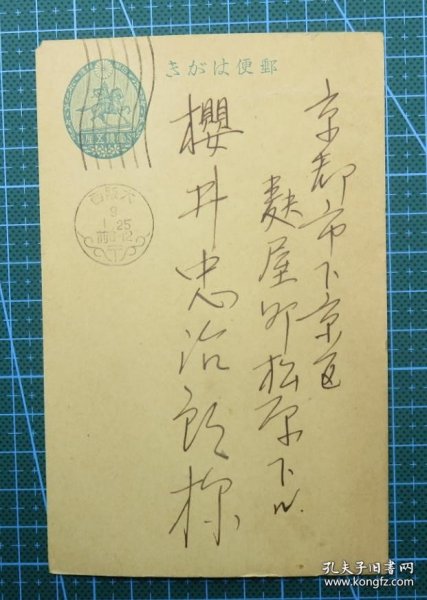 郵便はがき
京都市下京区
麩屋町松原下ル
櫻井忠治郎様
9
1.25
孔夫子旧书网
www.kongfz.com